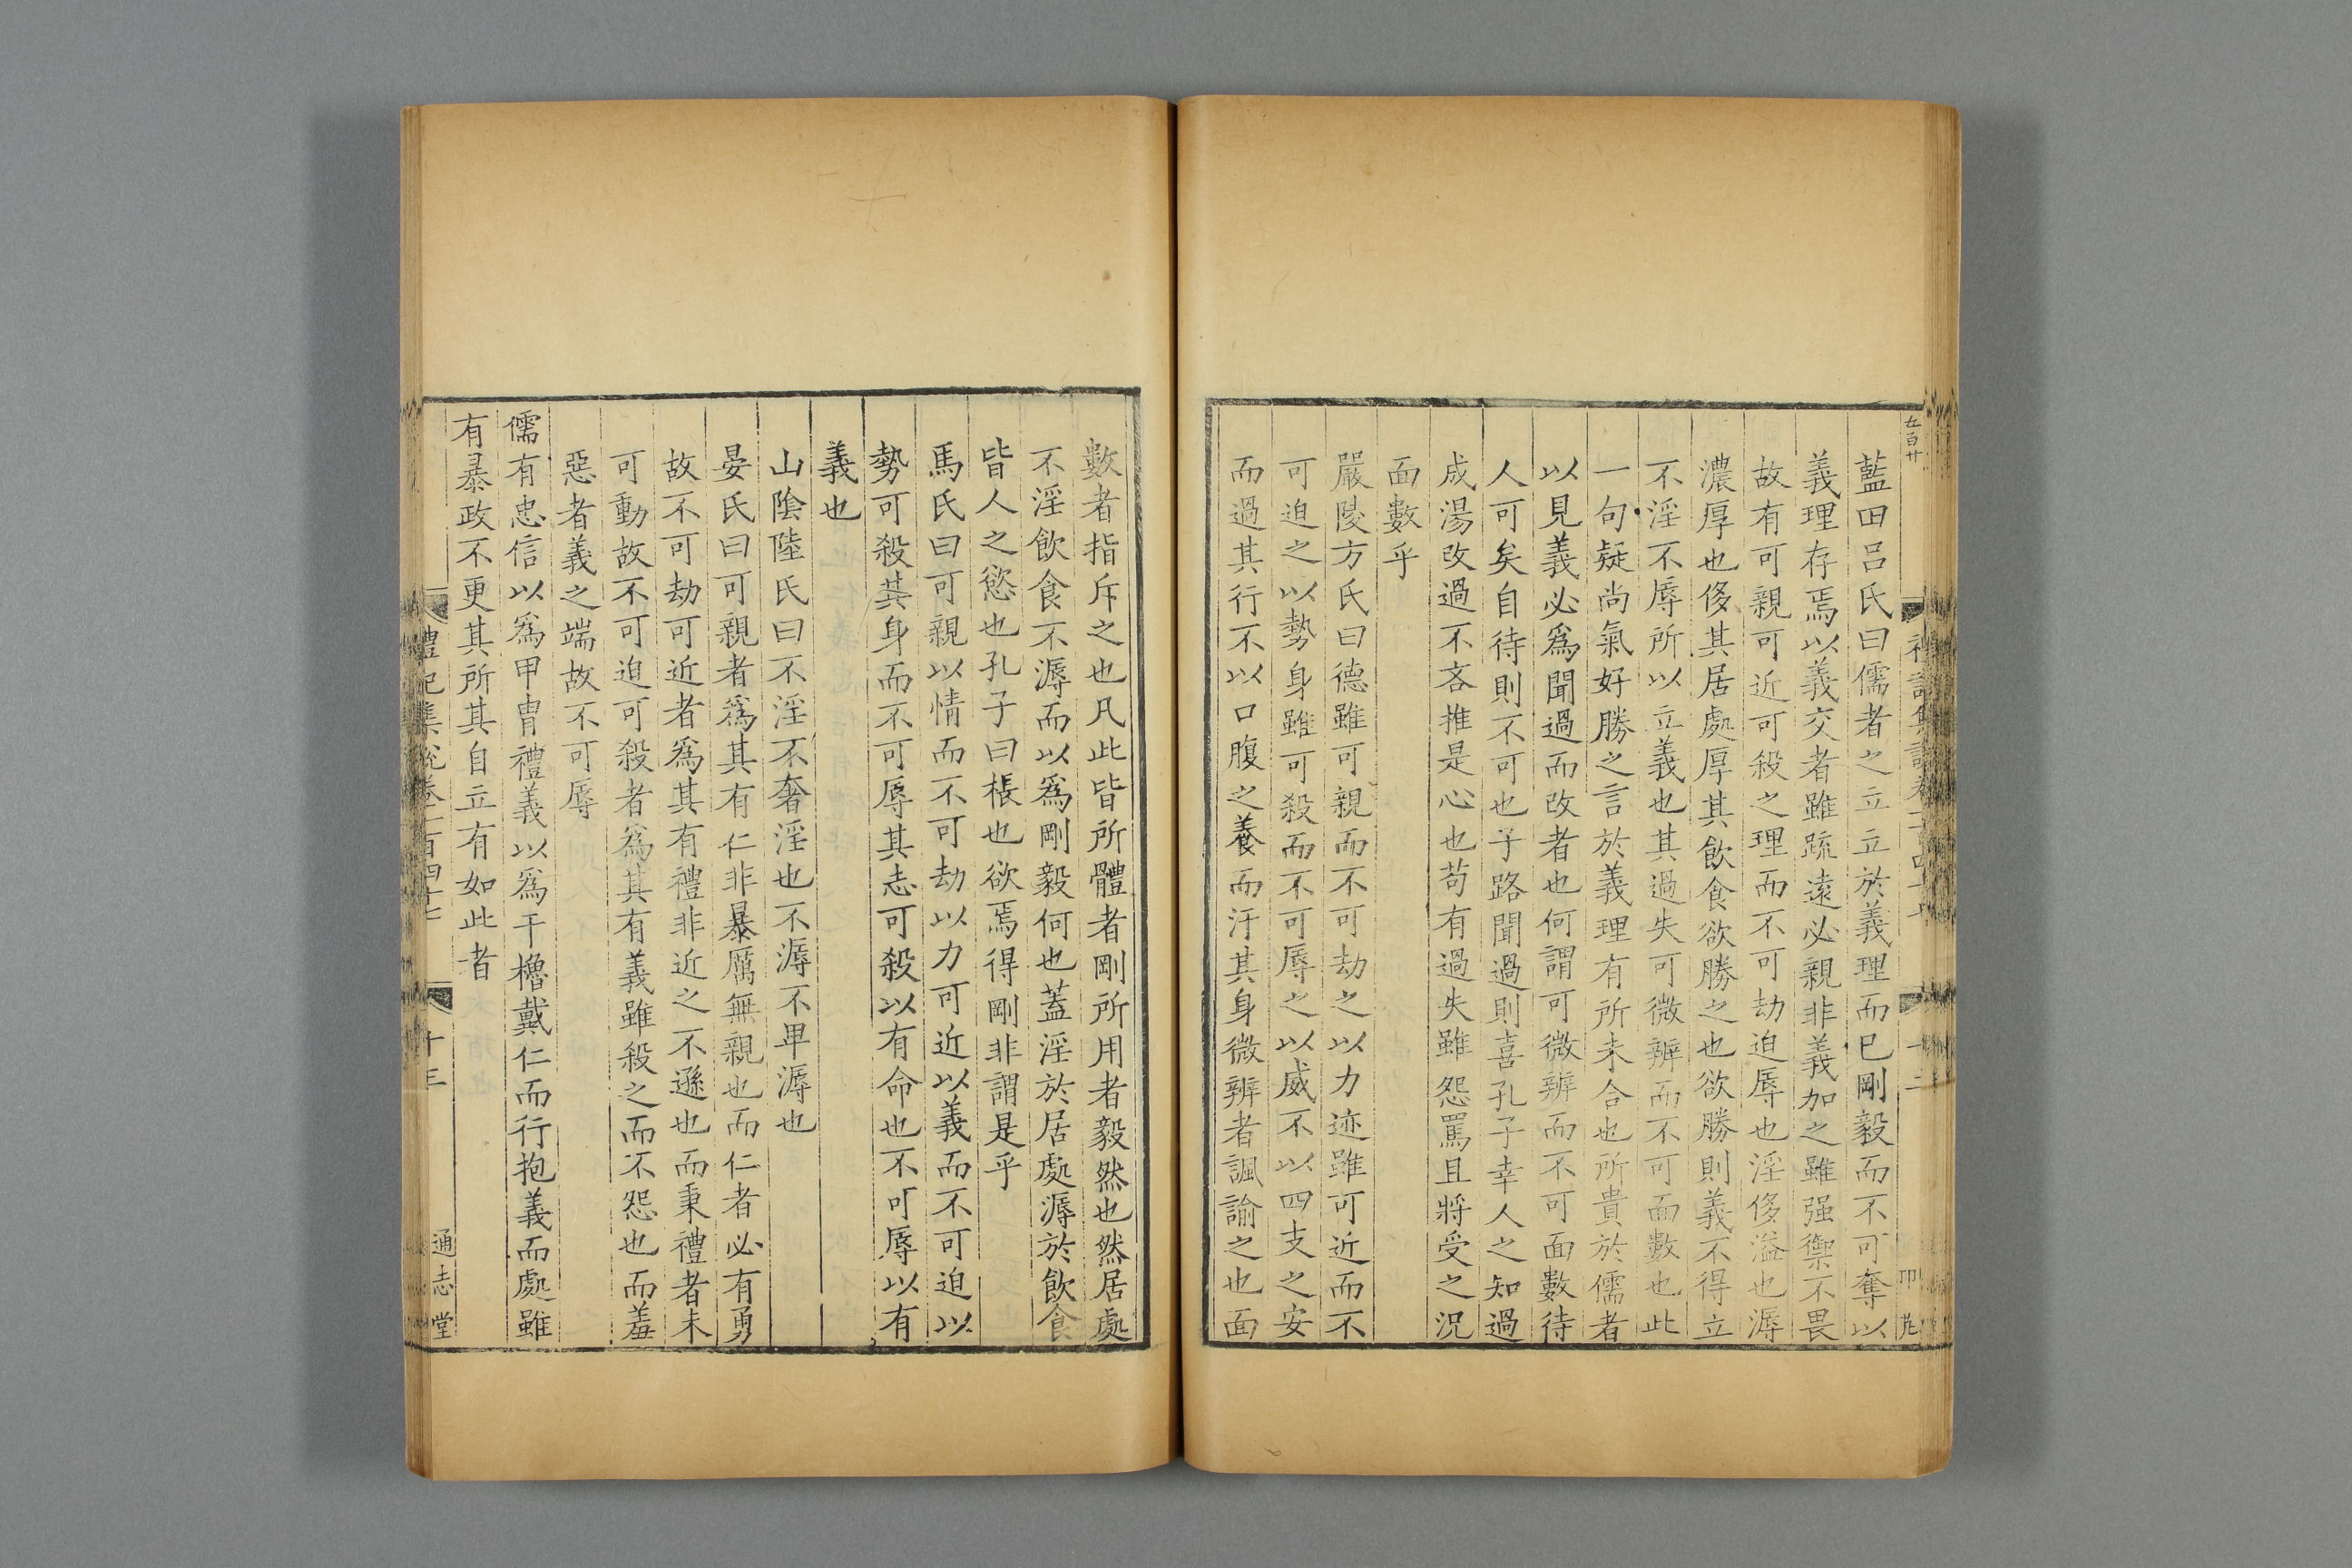 藍田呂氏曰儒者之立立於義理而已剛毅而不可奪以
義理存焉以義交者雖疏遠必親非義加之雖强禦不畏
故有可親可近可殺之理而不可劫迫辱也淫侈溢也溽
濃厚也侈其居處厚其飲食欲勝之也欲勝則義不得立
不淫不辱所以立義也其過失可微辨而不可面數也此
一句疑尚氣好勝之言於義理有所未合也所貴於儒者
以見義必爲聞過而改者也何謂可微辨而不可面數待
人可矣自待則不可也子路聞過則喜孔子幸人之知過
成湯改過不吝推是心也苟有過失雖怨罵且將受之況
面數乎
嚴陵方氏曰德雖可親而不可劫之以力迹雖可近而不
可迫之以勢身雖可殺而不可辱之以威不以四支之安
而過其行不以口腹之養而汙其身微辨者諷諭之也面
數者指斥之也凡此皆所體者剛所用者毅然也然居處
不淫飲食不溽而以爲剛毅何也蓋淫於居處溽於飲食
皆人之慾也孔子曰棖也欲焉得剛非謂是乎
馬氏曰可親以情而不可劫以力可近以義而不可迫以
勢可殺其身而不可辱其志可殺以有命也不可辱以有
義也
山陰陸氏曰不淫不奢淫也不溽不卑溽也
晏氏曰可親者爲其有仁非暴厲無親也而仁者必有勇
故不可劫可近者爲其有禮非近之不遜也而秉禮者未
可動故不可迫可殺者爲其有義雖殺之而不怨也而羞
惡者義之端故不可辱
儒有忠信以爲甲胄禮義以爲干櫓戴仁而行抱義而處雖
有暴政不更其所其自立有如此者
禮記集說卷一百四十七
十三
通志堂